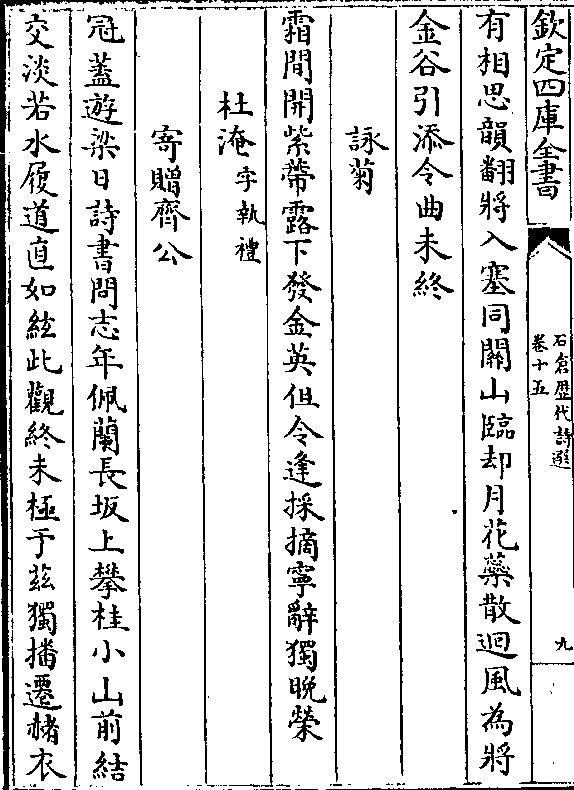 欽定四庫全書
石倉歷代詩選
卷十五
九
有相思韻翻將入塞同關山臨却月花蘂散迴風為將
金谷引添令曲未終
詠菊
霜間開紫蔕露下發金英但令逢採摘寧辭獨晚榮
杜淹字執禮
寄贈齊公
冠蓋遊梁日詩書問志年佩蘭長坂上攀桂小山前結
交淡若水履道直如絃此觀終未極于兹獨播遷赭衣